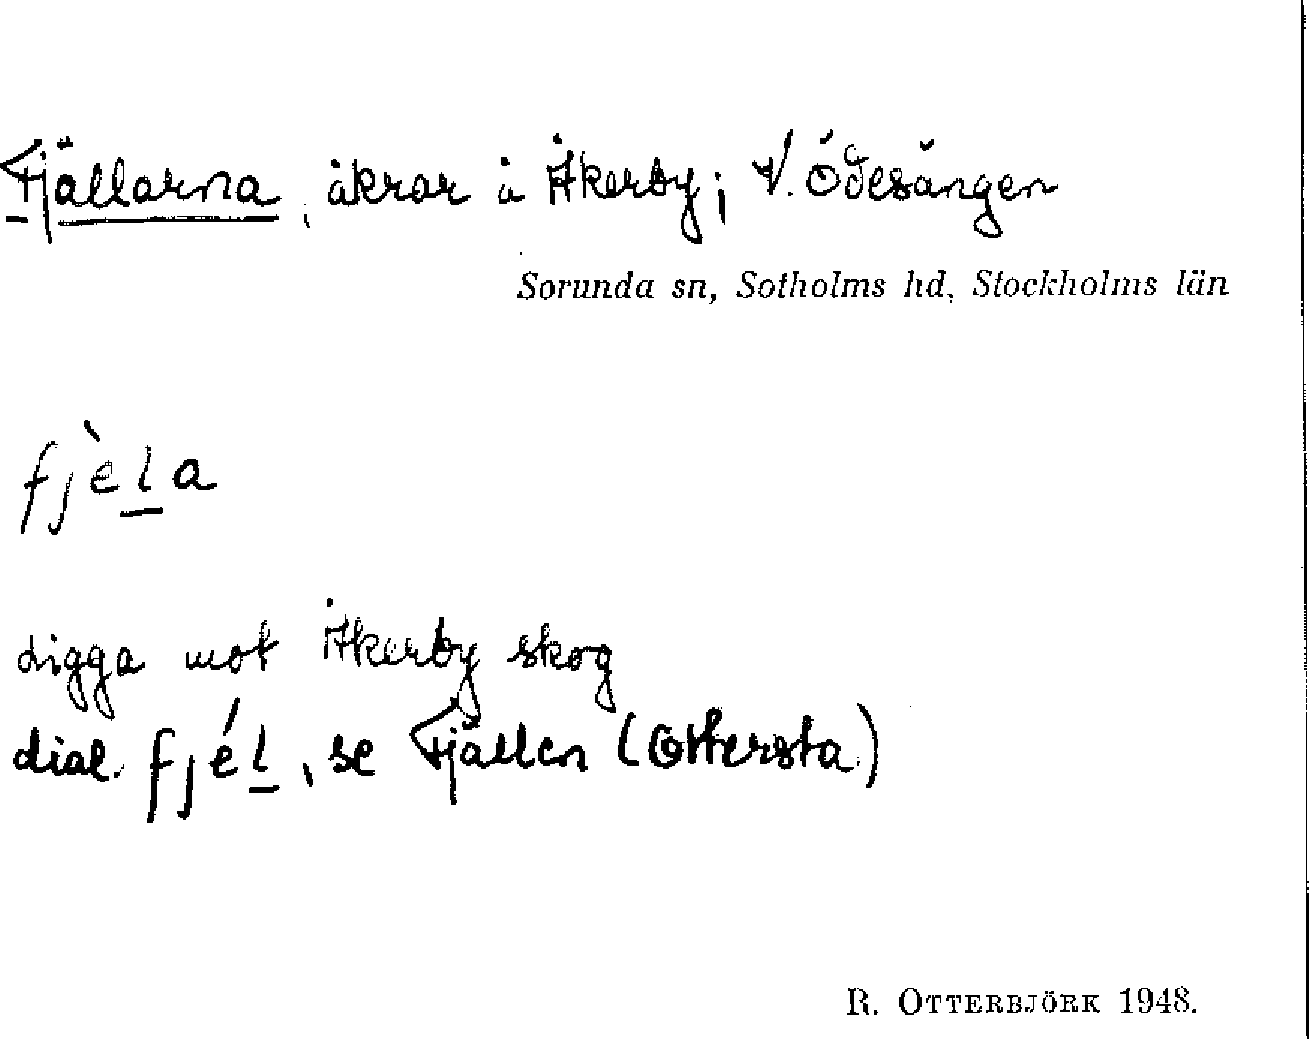 Fjällarna, åkrar å Åkerby; V. Ödesängen
Sorunda sn, Sotholms hd, Stockholms län
fjè̀l̲a
ligga mot Åkerby skog
dial. fjél̲, se Fjällen (Ottersta)
R. OTTERBJÖRK 1948.